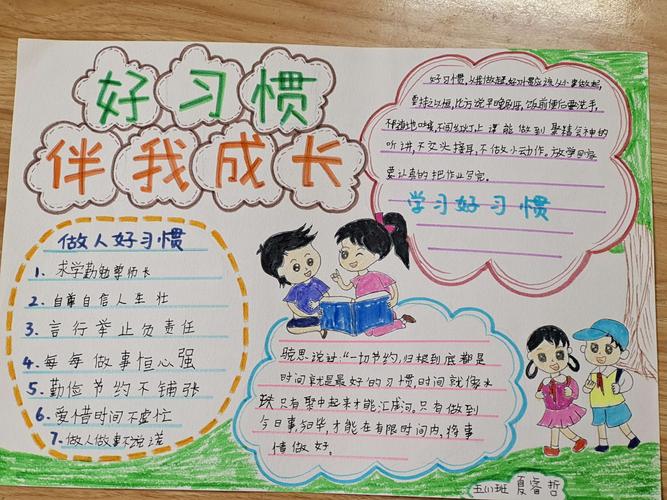 好习惯
伴我成长
做人好习惯
1. 求学勤勉尊师长
2. 自尊自信人生壮
3. 言行举止负责任
4. 每每做事恒心强
5. 勤俭节约不铺张
6. 爱惜时间不虚忙
7. 做人做事不说谎
好习惯,从我做起,好习惯应该从小事做起,
要持之以恒,比方说早晚刷牙,饭前便后要洗手,
不随地吐痰,不闯红灯,上课能做到聚精会神的
听讲,不交头接耳,不做小动作。放学回家
要认真的把作业写完。
学习好习惯
马克思说过:"一切节约,归根到底都是
时间就是最好的习惯,时间就像水
只有聚中起来才能汇成河。只有做到
今日事,今日毕,才能在有限时间内,将事
情做好。
五(1)班 夏睿哲